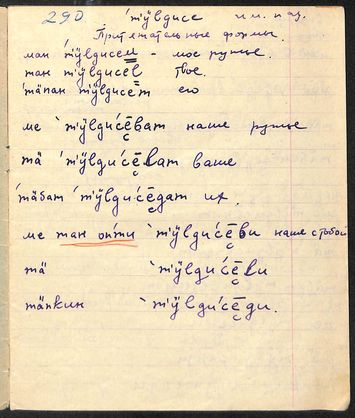 290 ‵тӱлдисе им. пад.
Притяжательные формы.
ман ‵тӱлдисем̳ – мое ружье.
тан тӱлдисе̄л твое.
‵тäпан тӱлдисе̄т его
ме ‵тӱлди′се̄ват наше ружье
тä ‵тӱлди′се̄лат ваше
‵тäбат ‵тӱлди′се̄дат их.
ме тан оп′ти ‵тӱлди′се̄ви наше с тобой
тä ‵тӱлди′се̄ли
тäпкин ‵тӱлди′се̄ди.